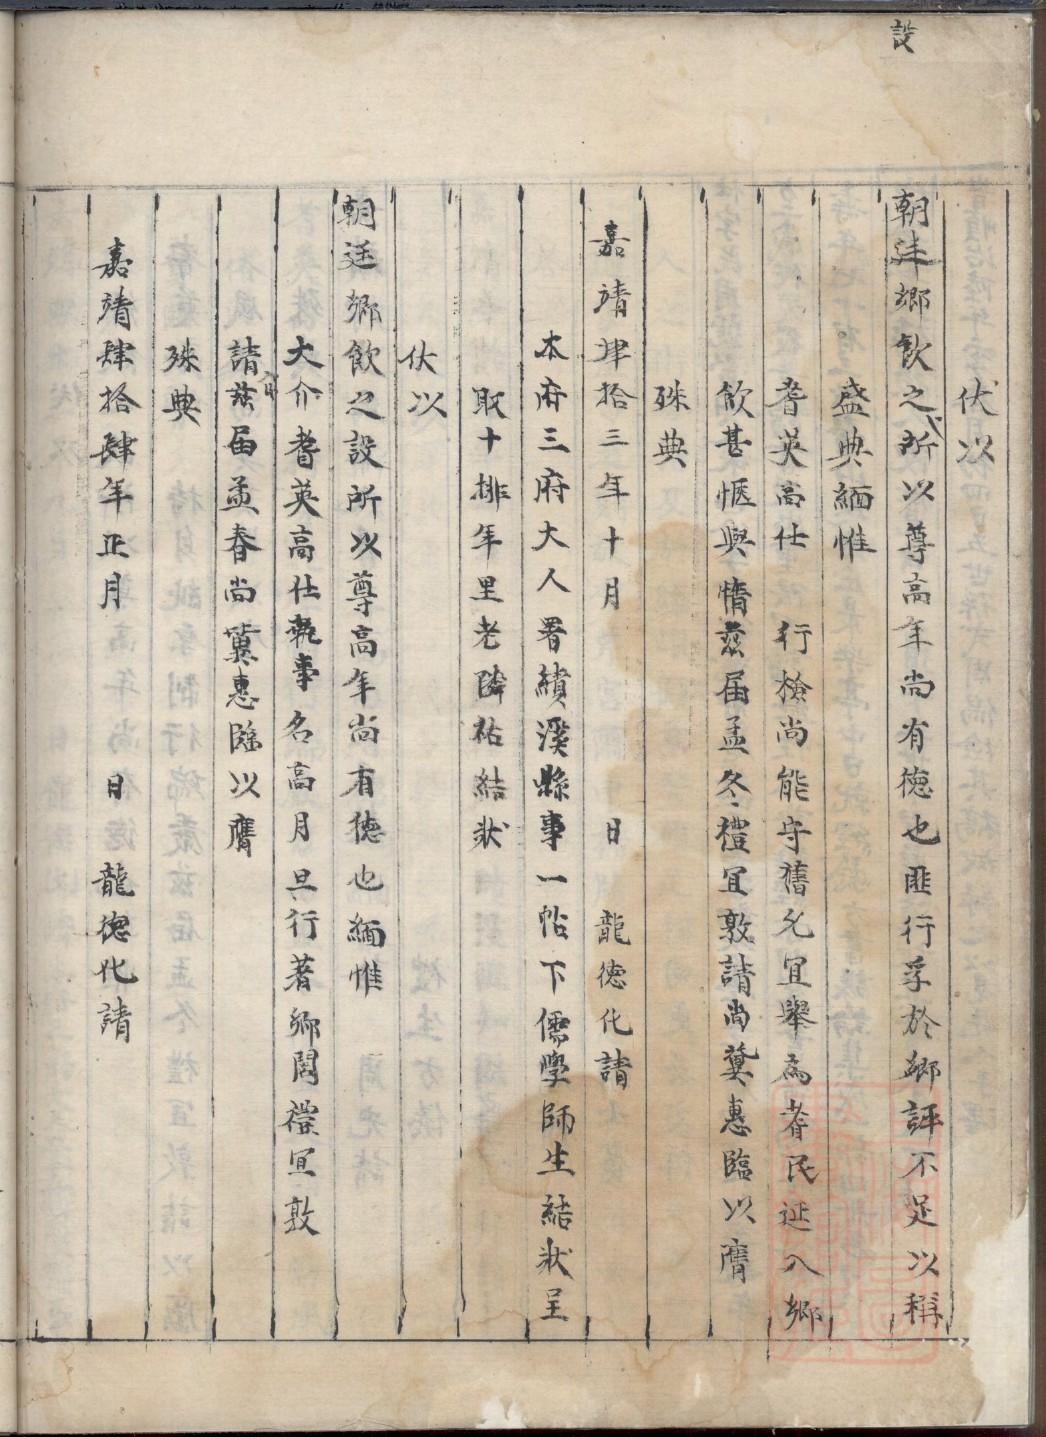 設
伏以
朝廷鄉飲之所以尊高年尚有德也匪行孚於鄉評不足以稱
盛典緬惟
耆英高仕 行檢尚能守舊允宜舉為耆民延入鄉
飲甚愜輿情茲届孟冬禮宜敦請尚冀惠臨以膺
殊典
嘉靖肆拾三年十月 日 龍德化請
本府三府大人署績溪縣事一帖下儒學師生結狀呈
取十排年里老隣祐結狀
伏以
朝廷鄉飲之設所以尊高年尚有德也緬惟
大介耆英高仕執事名高月旦行著鄉閭禮宜敦
請茲届孟春尚冀惠臨以膺
殊典
嘉靖肆拾肆年正月 日 龍德化請